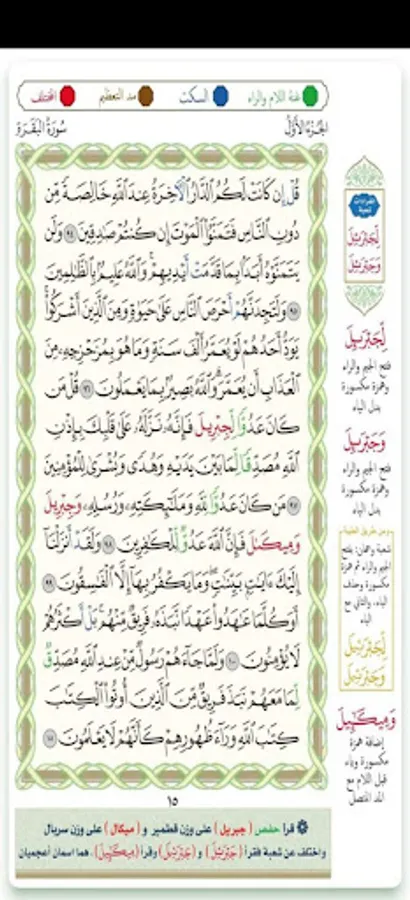 غنة اللام والراء السكت مد التعظيم المختلف
الجزء الأول سورة البقرة
قُلْ إِن كَانَتْ لَكُمُ الدَّارُ الْآخِرَةُ عِندَ اللَّهِ خَالِصَةً مِّن
دُونِ النَّاسِ فَتَمَنَّوُا الْمَوْتَ إِن كُنتُمْ صَادِقِينَ ٩٤ وَلَن
يَتَمَنَّوْهُ أَبَدًا بِمَا قَدَّمَتْ أَيْدِيهِمْ وَاللَّهُ عَلِيمٌ بِالظَّالِمِينَ
٩٥ وَلَتَجِدَنَّهُمْ أَحْرَصَ النَّاسِ عَلَىٰ حَيَوٰةٍ وَمِنَ الَّذِينَ أَشْرَكُوا
يَوَدُّ أَحَدُهُمْ لَوْ يُعَمَّرُ أَلْفَ سَنَةٍ وَمَا هُوَ بِمُزَحْزِحِهِ مِنَ
الْعَذَابِ أَن يُعَمَّرَ وَاللَّهُ بَصِيرٌ بِمَا يَعْمَلُونَ ٩٦ قُلْ مَن
كَانَ عَدُوًّا لِّجِبْرِيلَ فَإِنَّهُ نَزَّلَهُ عَلَىٰ قَلْبِكَ بِإِذْنِ
اللَّهِ مُصَدِّقًا لِّمَا بَيْنَ يَدَيْهِ وَهُدًى وَبُشْرَىٰ لِلْمُؤْمِنِينَ
٩٧ مَن كَانَ عَدُوًّا لِّلَّهِ وَمَلَٰئِكَتِهِ وَرُسُلِهِ وَجِبْرِيلَ
وَمِيكَىٰلَ فَإِنَّ اللَّهَ عَدُوٌّ لِّلْكَٰفِرِينَ ٩٨ وَلَقَدْ أَنزَلْنَا
إِلَيْكَ ءَايَٰتٍ بَيِّنَٰتٍ وَمَا يَكْفُرُ بِهَا إِلَّا الْفَٰسِقُونَ ٩٩
أَوَكُلَّمَا عَٰهَدُوا عَهْدًا نَّبَذَهُ فَرِيقٌ مِّنْهُم بَلْ أَكْثَرُهُمْ
لَا يُؤْمِنُونَ ١٠٠ وَلَمَّا جَاءَهُمْ رَسُولٌ مِّنْ عِندِ اللَّهِ مُصَدِّقٌ
لِّمَا مَعَهُمْ نَبَذَ فَرِيقٌ مِّنَ الَّذِينَ أُوتُوا الْكِتَٰبَ
كِتَٰبَ اللَّهِ وَرَاءَ ظُهُورِهِمْ كَأَنَّهُمْ لَا يَعْلَمُونَ ١٠١
١٥
لِجَبْرَئِيلَ
وَجَبْرَئِيلَ
لِجَبْرَئِيلَ
فتح الجيم والراء
وهمزة مكسورة
بدل الياء
وَجَبْرَئِيلَ
فتح الجيم والراء
وهمزة مكسورة
بدل الياء
الجيم والراء ثم همزة
مكسورة وحذف
الياء، والثاني مع
الياء
لِجَبْرَئِيلَ
وَجَبْرَئِيلَ
وَمِيكَٰئِيلَ
إضافة همزة
مكسورة وياء
قبل اللام مع
المد المتصل
قرأ حفص (جبريل) على وزن قطمير و(ميكال) على وزن سربال
واختلف عن شعبة فقرأ (جَبْرَئِلَ) و(جَبْرَئِيلَ) وقرأ (ميكائيل). هما اسمان أعجميان